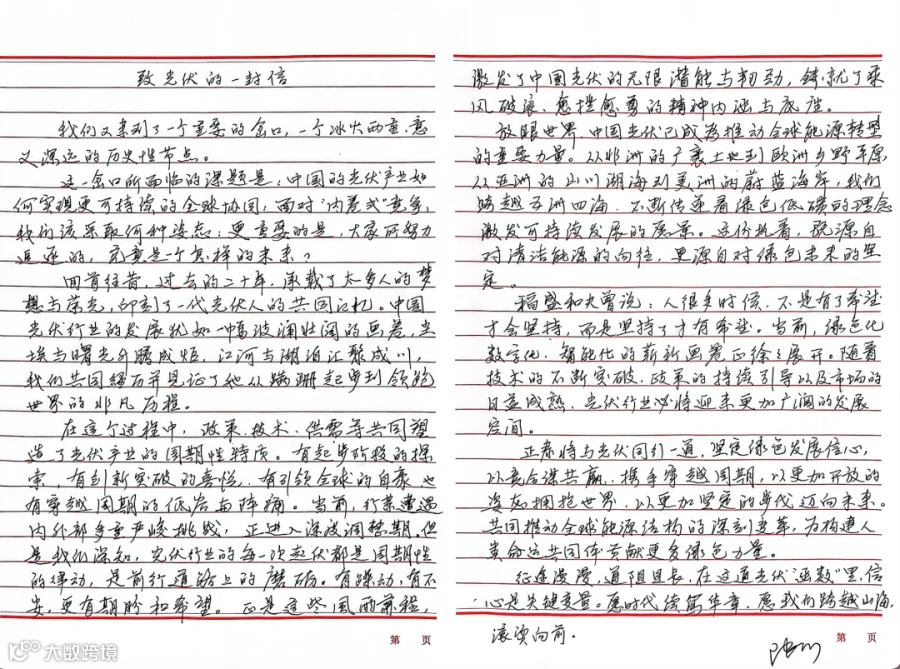 致光伏的一封信
我们又来到了一个重要的岔口,一个冰火两重、意
义深远的历史性节点。
这一岔口所面临的课题是:中国的光伏产业如
何实现更可持续的全球协同,面对“内卷式”竞争,
我们该采取何种姿态;更重要的是,大家所努力
追逐的,究竟是一个怎样的未来?
回首往昔,过去的二十年,承载了太多人的梦
想与荣光,印刻了一代光伏人的共同记忆。中国
光伏行业的发展犹如一幅波澜壮阔的画卷,尘
埃与曙光升腾成炬,江河与湖泊汇聚成川,
我们共同经历并见证了他从蹒跚起步到领跑
世界的非凡历程。
在这个过程中,政策、技术、供需等共同塑
造了光伏产业的周期性特质。有起步阶段的探
索,有创新突破的喜悦,有引领全球的自豪,也
有穿越周期的低谷与阵痛。当前,行业遭遇
内外部多重严峻挑战,正进入深度调整期。但
是我们深知,光伏行业的每一次起伏都是周期性
的律动,是前行道路上的磨砺。有躁动,有不
安,更有期盼和希望。正是这些风雨兼程,
激发了中国光伏的无限潜能与韧劲,铸就了乘
风破浪、愈挫愈勇的精神内涵与底座。
放眼世界,中国光伏已成为推动全球能源转型
的重要力量。从非洲的广袤土地到欧洲乡野平原,
从亚洲的山川湖海到美洲的蔚蓝海岸,我们
跨越五洲四海,不断传递着绿色低碳的理念
激发可持续发展的愿景。这份执着,既源自
对清洁能源的向往,更源自对绿色未来的坚
定。
稻盛和夫曾说:人很多时候,不是有了希望
才会坚持,而是坚持了才有希望。当前,绿色化
数字化、智能化的崭新画卷正徐徐展开。随着
技术的不断突破、政策的持续引导以及市场的
日益成熟,光伏行业必将迎来更加广阔的发展
空间。
正泰将与光伏同行一道,坚定绿色发展信心,
以竞合谋共赢,携手穿越周期,以更加开放的
姿态拥抱世界,以更加坚定的步伐迈向未来。
共同推动全球能源结构的深刻变革,为构建人
类命运共同体贡献更多绿色力量。
征途漫漫,道阻且长,在这道光伏“函数”里,信
心是关键变量。愿时代续写华章,愿我们跨越山海,
滚烫向前。
第 页
第 页
大数跨境